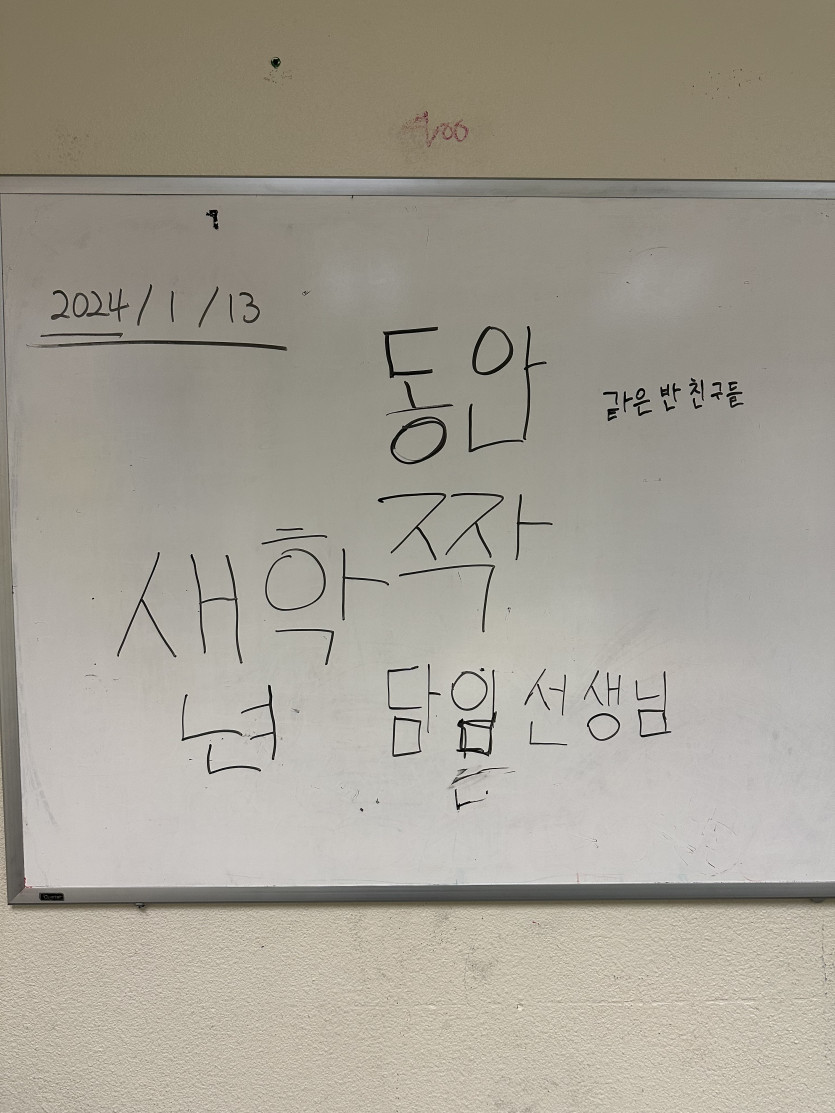 2024/1/13
동안
같은 반 친구들
짝
새학
년
담임 선생님